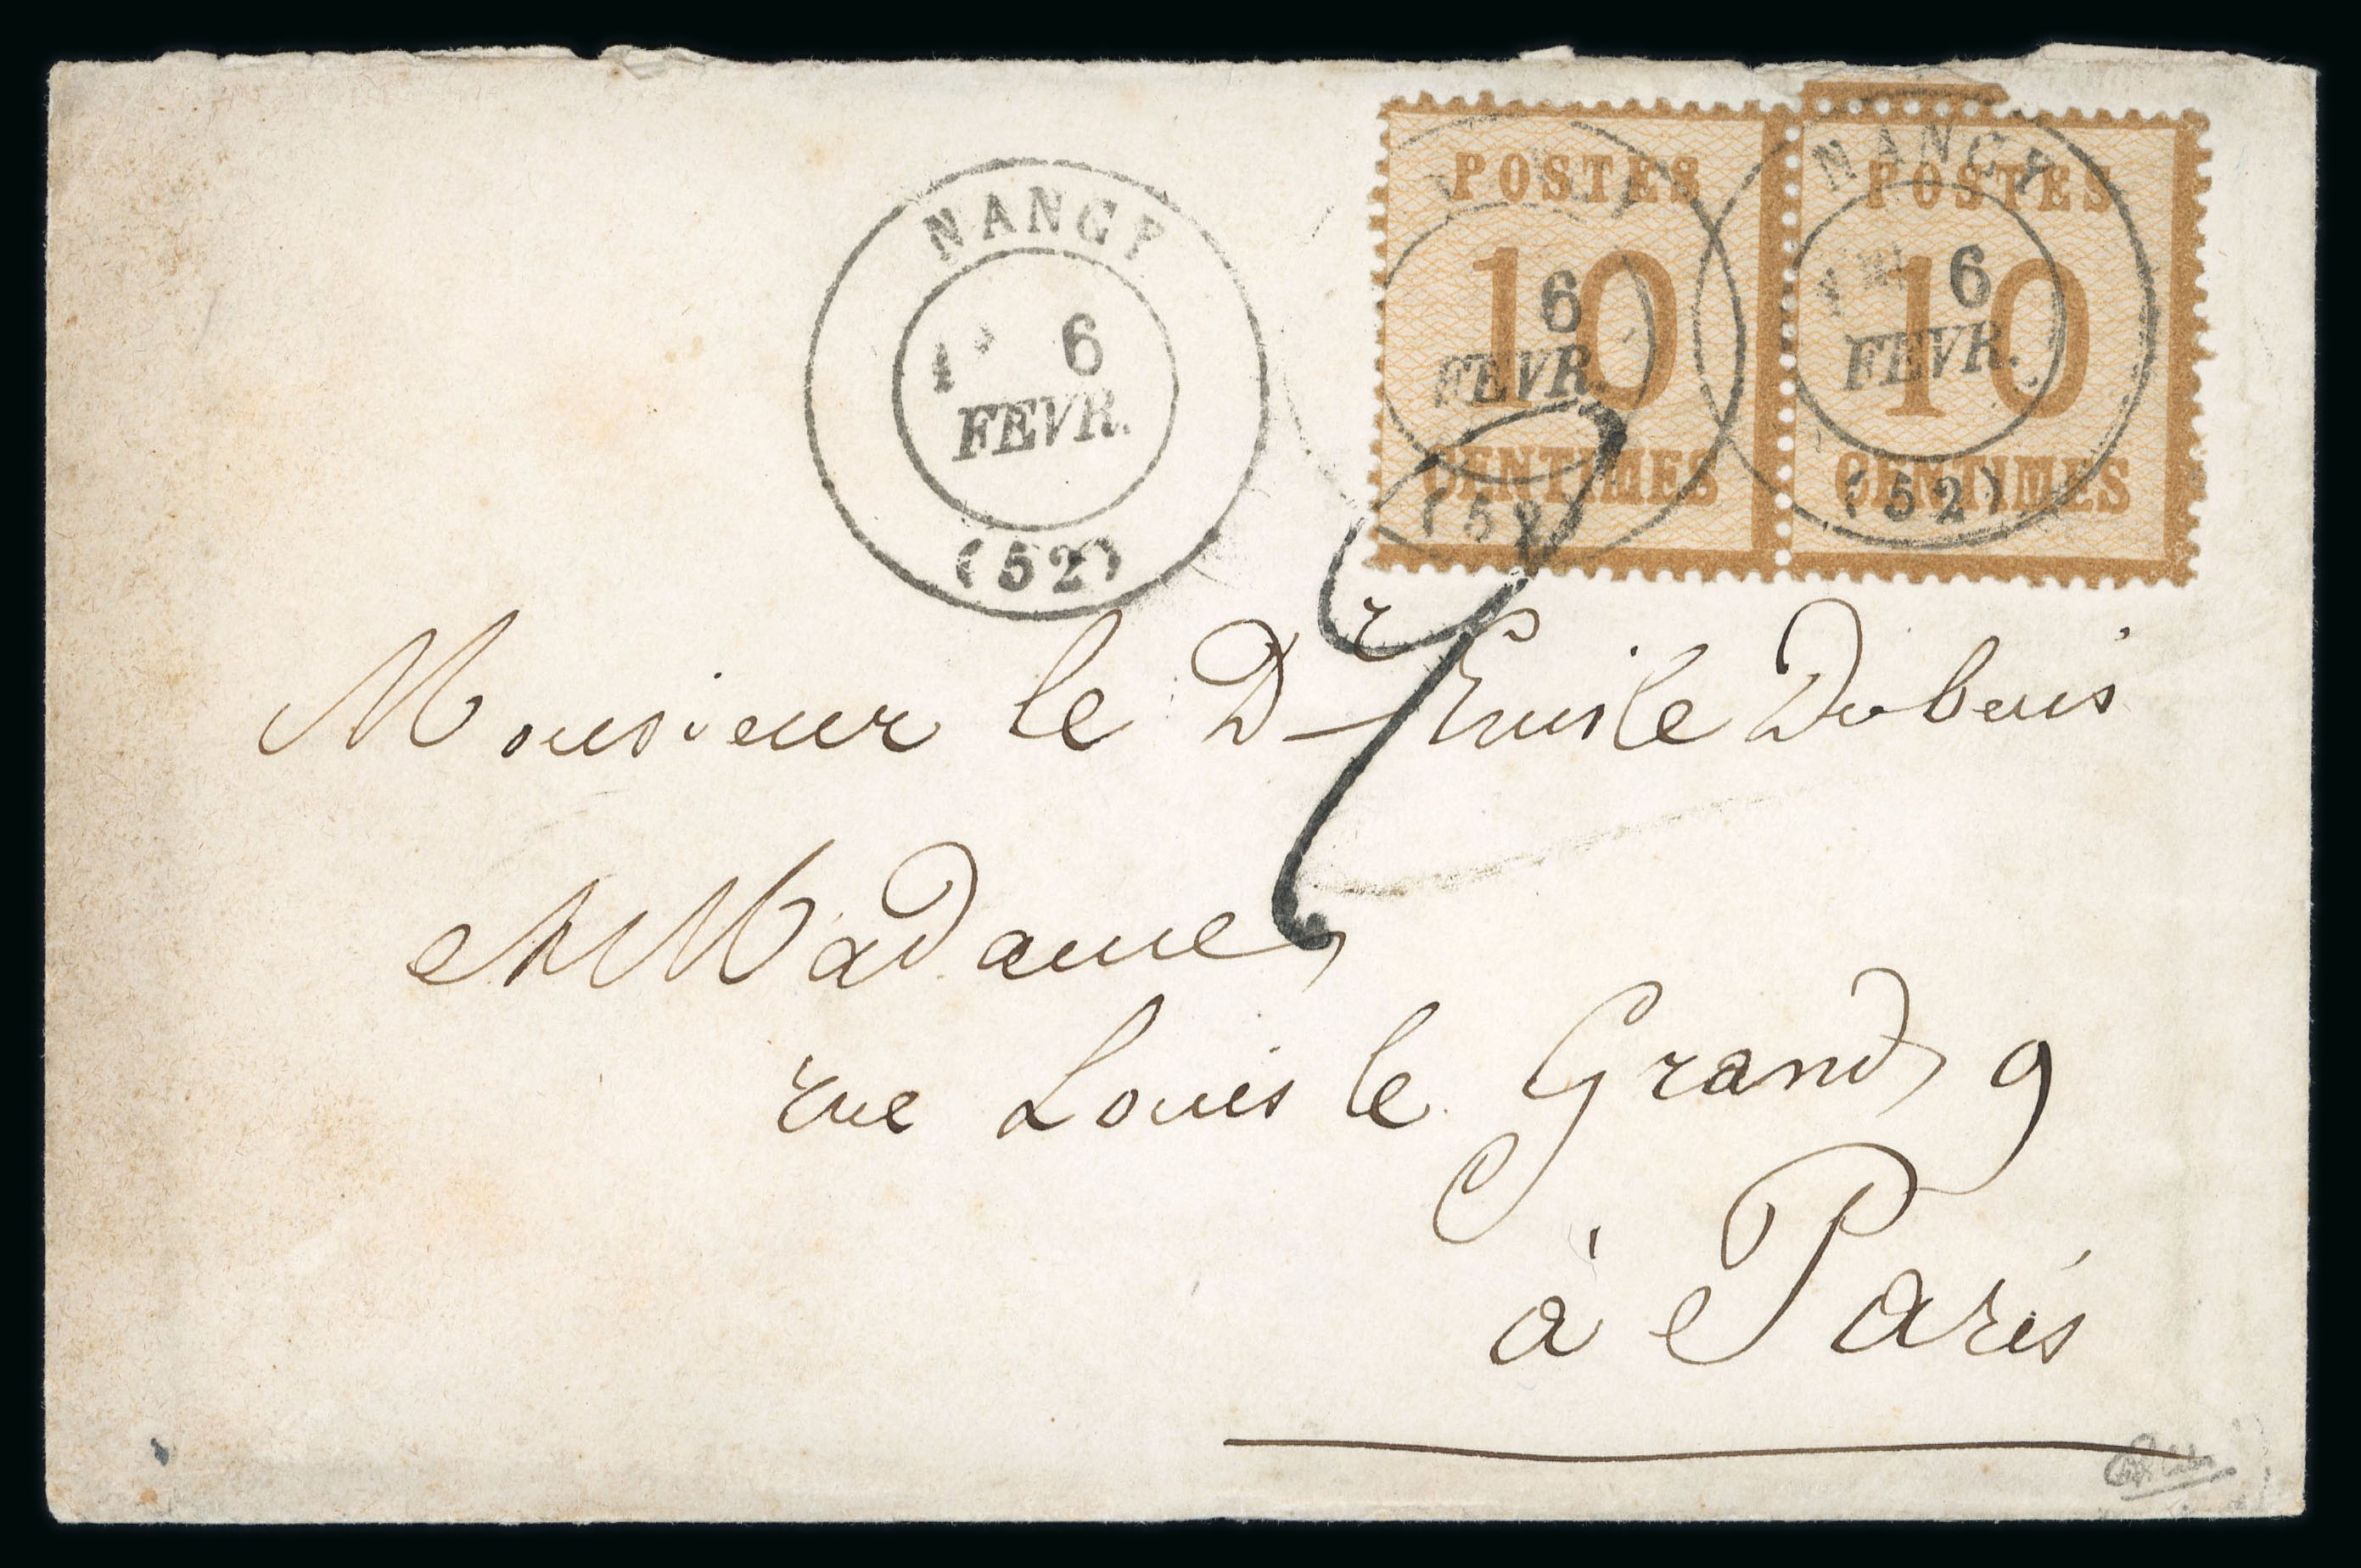 NANCY
6
FEVR.
(52)
POSTES
10
CENTIMES
6
FEVR.
(52)
NANCY
POSTES
10
CENTIMES
6
FEVR.
(52)
2
Monsieur le Dr Emile Dubois
et Madame,
rue Louis le Grand, 9
à Paris